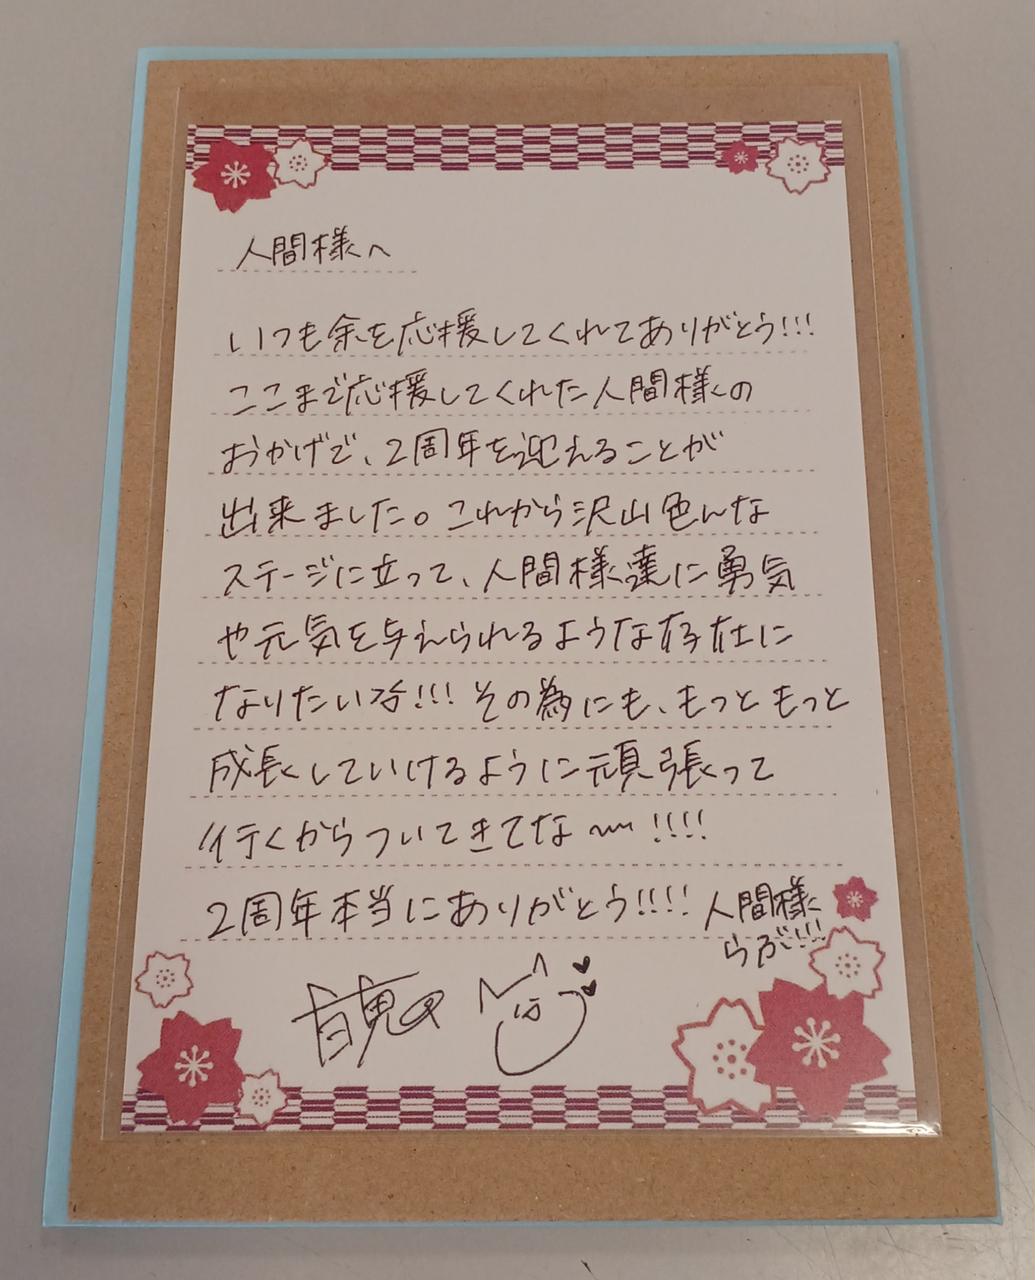 人間様へ
いつも余を応援してくれてありがとう!!!
ここまで応援してくれた人間様の
おかげで、2周年を迎えることが
出来ました。これから沢山色んな
ステージに立って、人間様達に勇気
や元気を与えられるような存在に
なりたいぞ!!!その為にも、もっともっと
成長していけるように頑張って
行くからついてきてな〜!!!!
2周年本当にありがとう!!!!
人間様
らぶ!!!
百鬼